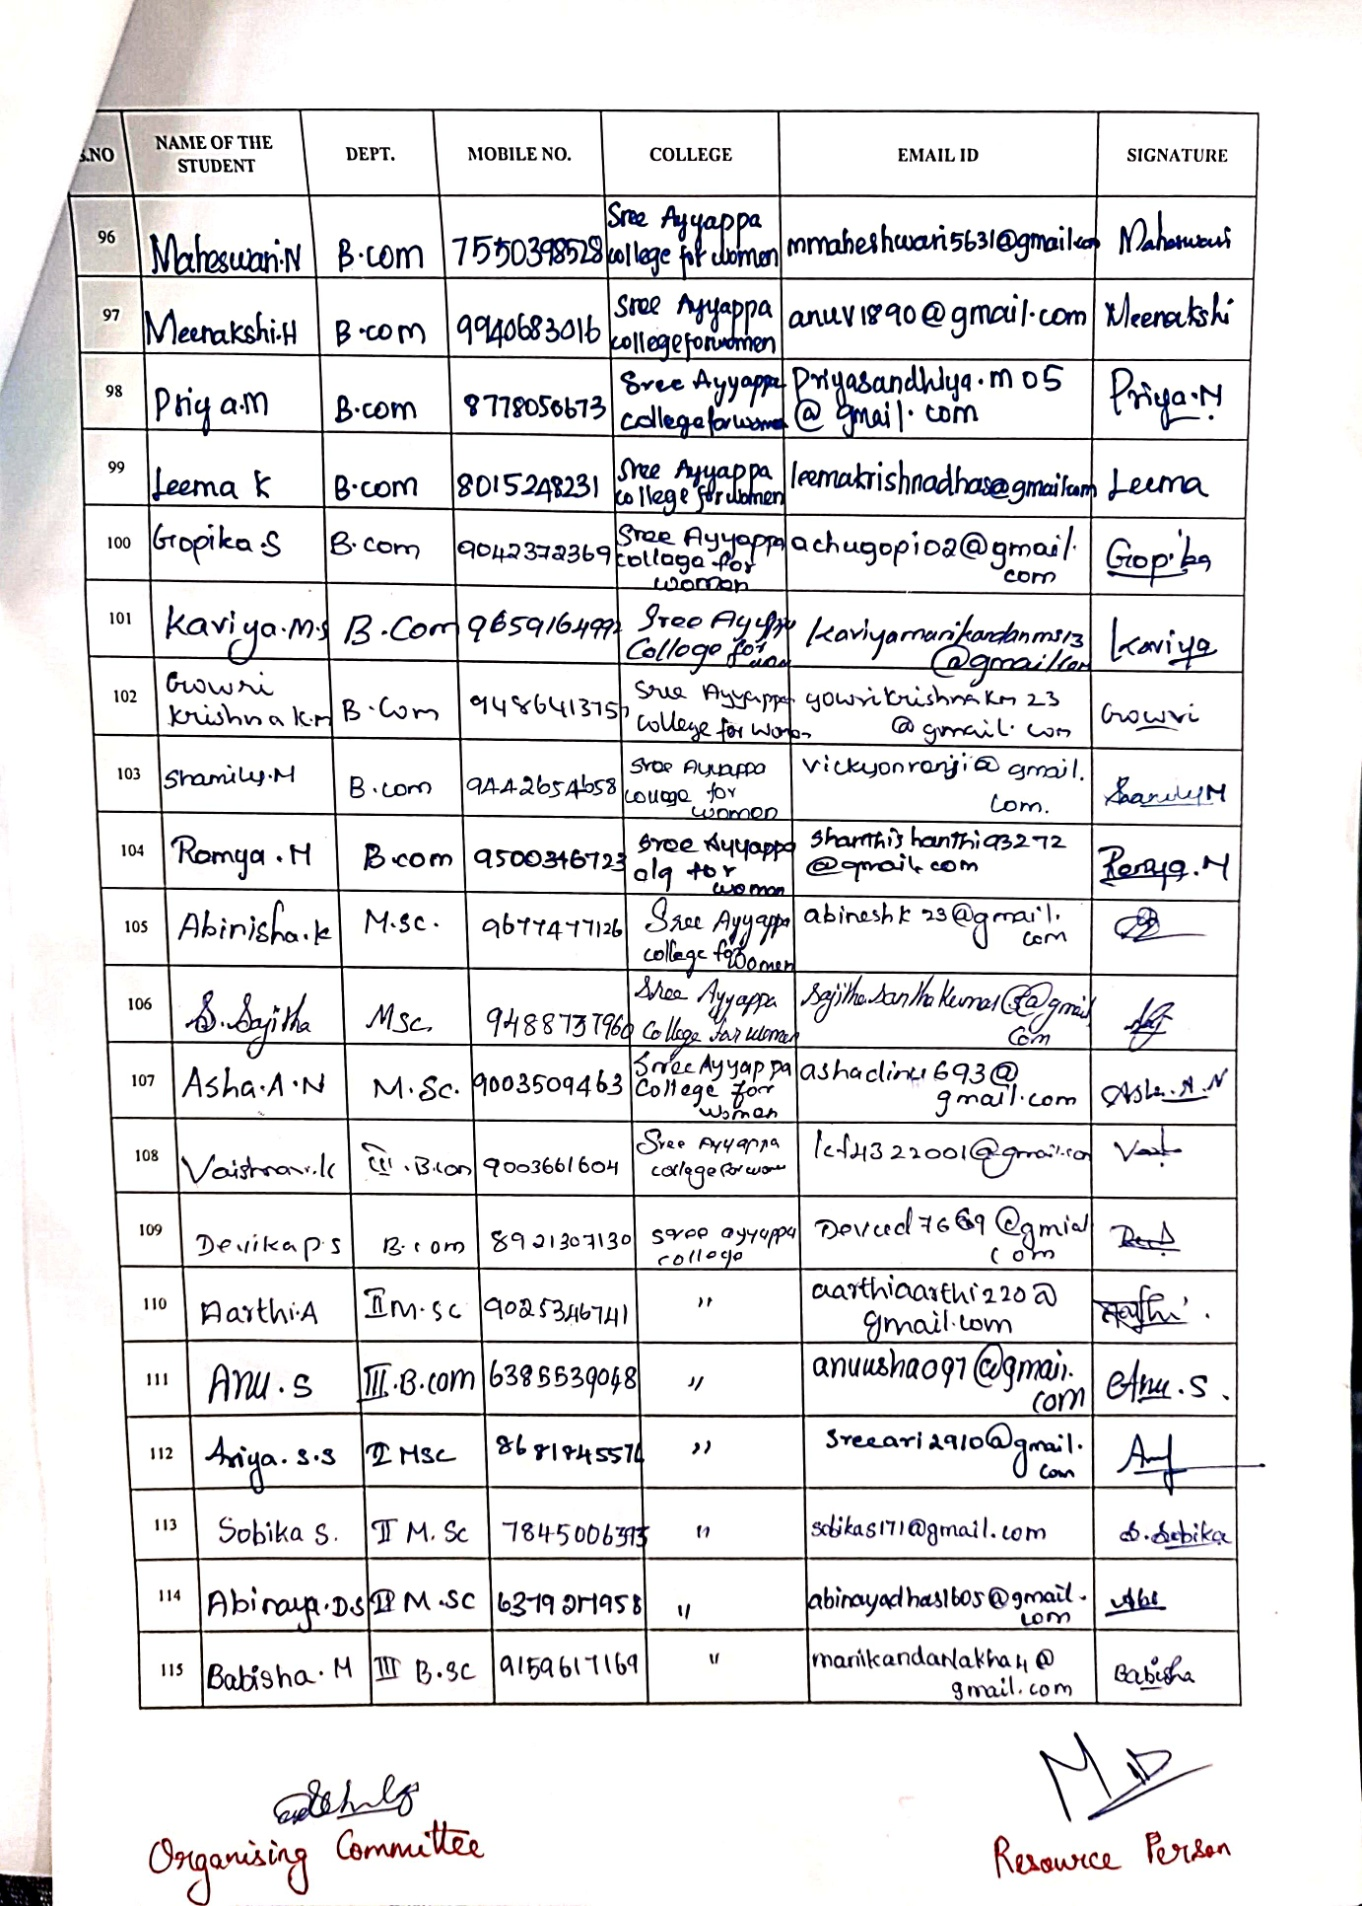 S.NO NAME OF THE STUDENT DEPT. MOBILE NO. COLLEGE EMAIL ID SIGNATURE
96 Maheswari.N B.com 7550398528 Sree Ayyappa college for women mmaheshwari5631@gmail.com Maheswari
97 Meenakshi.H B.com 9940683016 Sree Ayyappa college for women anuv1890@gmail.com Meenakshi
98 Priya.M B.com 8778050673 Sree Ayyappa college for women Priyasandhiya.m05@gmail.com Priya.M
99 Leema K B.com 8015248231 Sree Ayyappa college for women leemakrishnadhas@gmail.com Leema
100 Gopika.S B.com 9042372369 Sree Ayyappa collage for woman achugopi02@gmail.com Gopika
101 Kaviya.M.S B.Com Sree College for kaviyamanikandanms13@gmail.com Kaviya
102 Gowri Krishna K.M B.Com Sree Ayyappa college for gowrikrishnakm23@gmail.com Gowri
103 Shamily.M B.com 9442654658 Sree Ayyappa college for women vickyonranji@gmail.com.
104 Ramya.M B.com 9500346723 Sree Ayyappa clg for woman shanthishanthi93272@gmail.com Ramya.M
105 Abinisha.K M.SC. 9677477126 Sree Ayyappa college for Women abineshk23@gmail.com
106 S.Sajitha MSC. 9488737960 Sree Ayyappa College for women
107 Asha.A.N M.Sc. 9003509463 Sree Ayyappa College for Woman ashadinu693@gmail.com Asha.A.N
108 Vaishnavi.K III.B.com 9003661604 Sree Ayyappa college for
109 Devika p.s B.com 8921307130 sree ayyappa college
110 Aarthi.A II M.SC 9025346741 " aarthiaarthi220@gmail.com Aarthi.
111 Anu.S III.B.com 6385539048 " anuusha097@gmail.com Anu.S.
112 Ariya.S.S II MSC " sreeari2910@gmail.com
113 Sobika S. II M.Sc " sobikas171@gmail.com S.Sobika
114 Abinaya.D.S II M.SC 6379271958 " abinayadhas1605@gmail.com Abi
115 Babisha.M III B.SC 9159617169 " manikandanlakha4@gmail.com Babisha
Organising Committee Resource Person